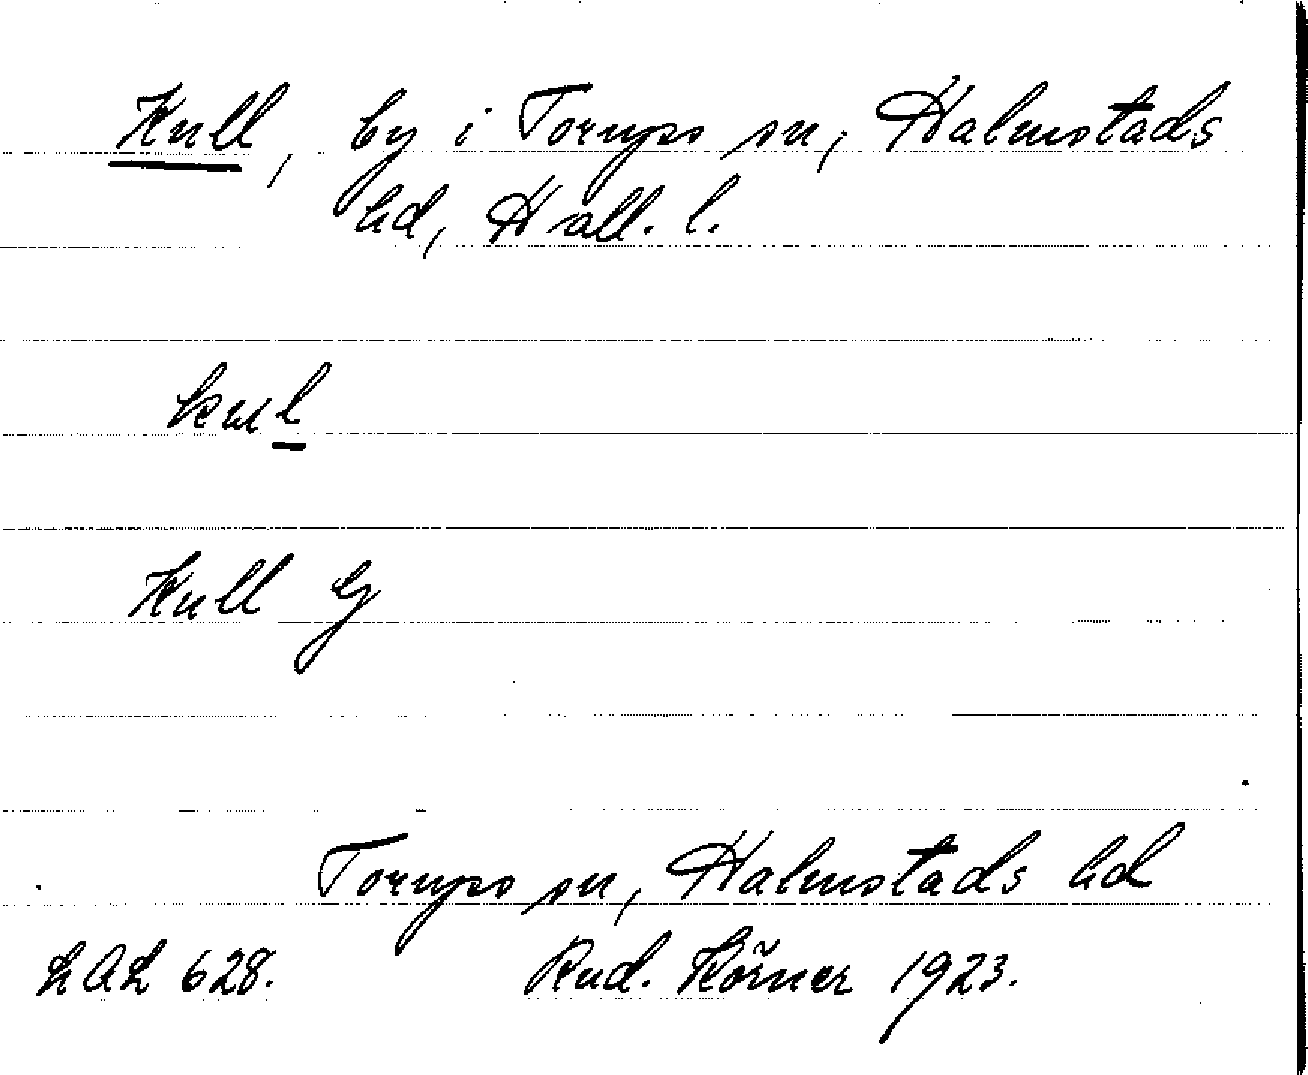 Kull, by i Torups sn, Halmstads
hd, Hall. l.
kul
Kull G
Torups sn, Halmstads hd
LAL 628. Rud. Körner 1923.